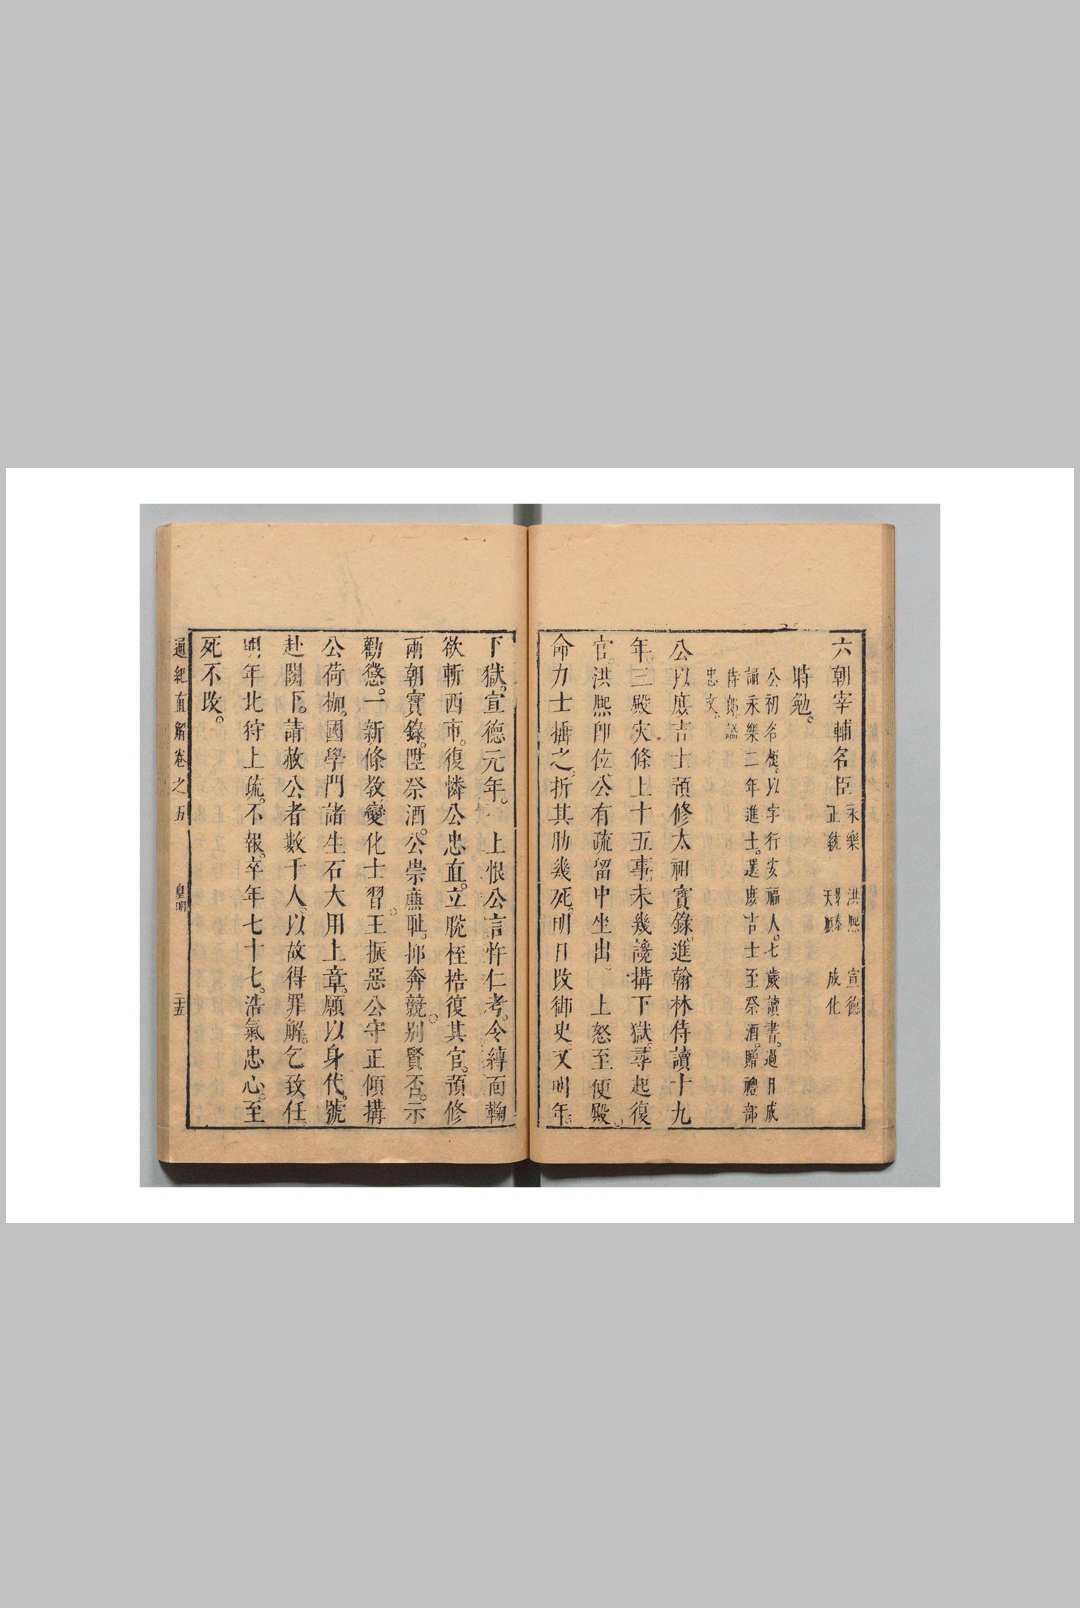 六朝宰輔名臣 永樂 洪熙 宣德 正統 景泰 天順 成化
時勉。
公初名懋。以字行安福人。七歲讀書。過目成
誦永樂二年進士。選庶吉士至祭酒。贈禮部
侍郎。謚
忠文。
公以庶吉士預修太祖實錄。進翰林侍讀十九
年。三殿灾條上十五事。未幾讒搆下獄。尋起復
官。洪熙即位公有疏留中坐出。上怒至便殿。
命力士捶之。折其肋幾死。明日改御史又明年。
下獄。宣德元年。上恨公言忤仁考。令縛面鞫
欲斬西市。復憐公忠直。立脫桎梏復其官。預修
兩朝實錄。陞祭酒。公崇廉恥。抑奔競。别賢否。示
勸懲。一新條教變化士習。王振惡公守正傾搆
公荷枷。國學門諸生石大用上章。願以身代。號
赴闕下。請赦公者數千人。以故得罪解。乞致仕
明年北狩上疏。不報。卒年七十七。浩氣忠心。至
死不改。
通紀直解卷之五 皇明 三五